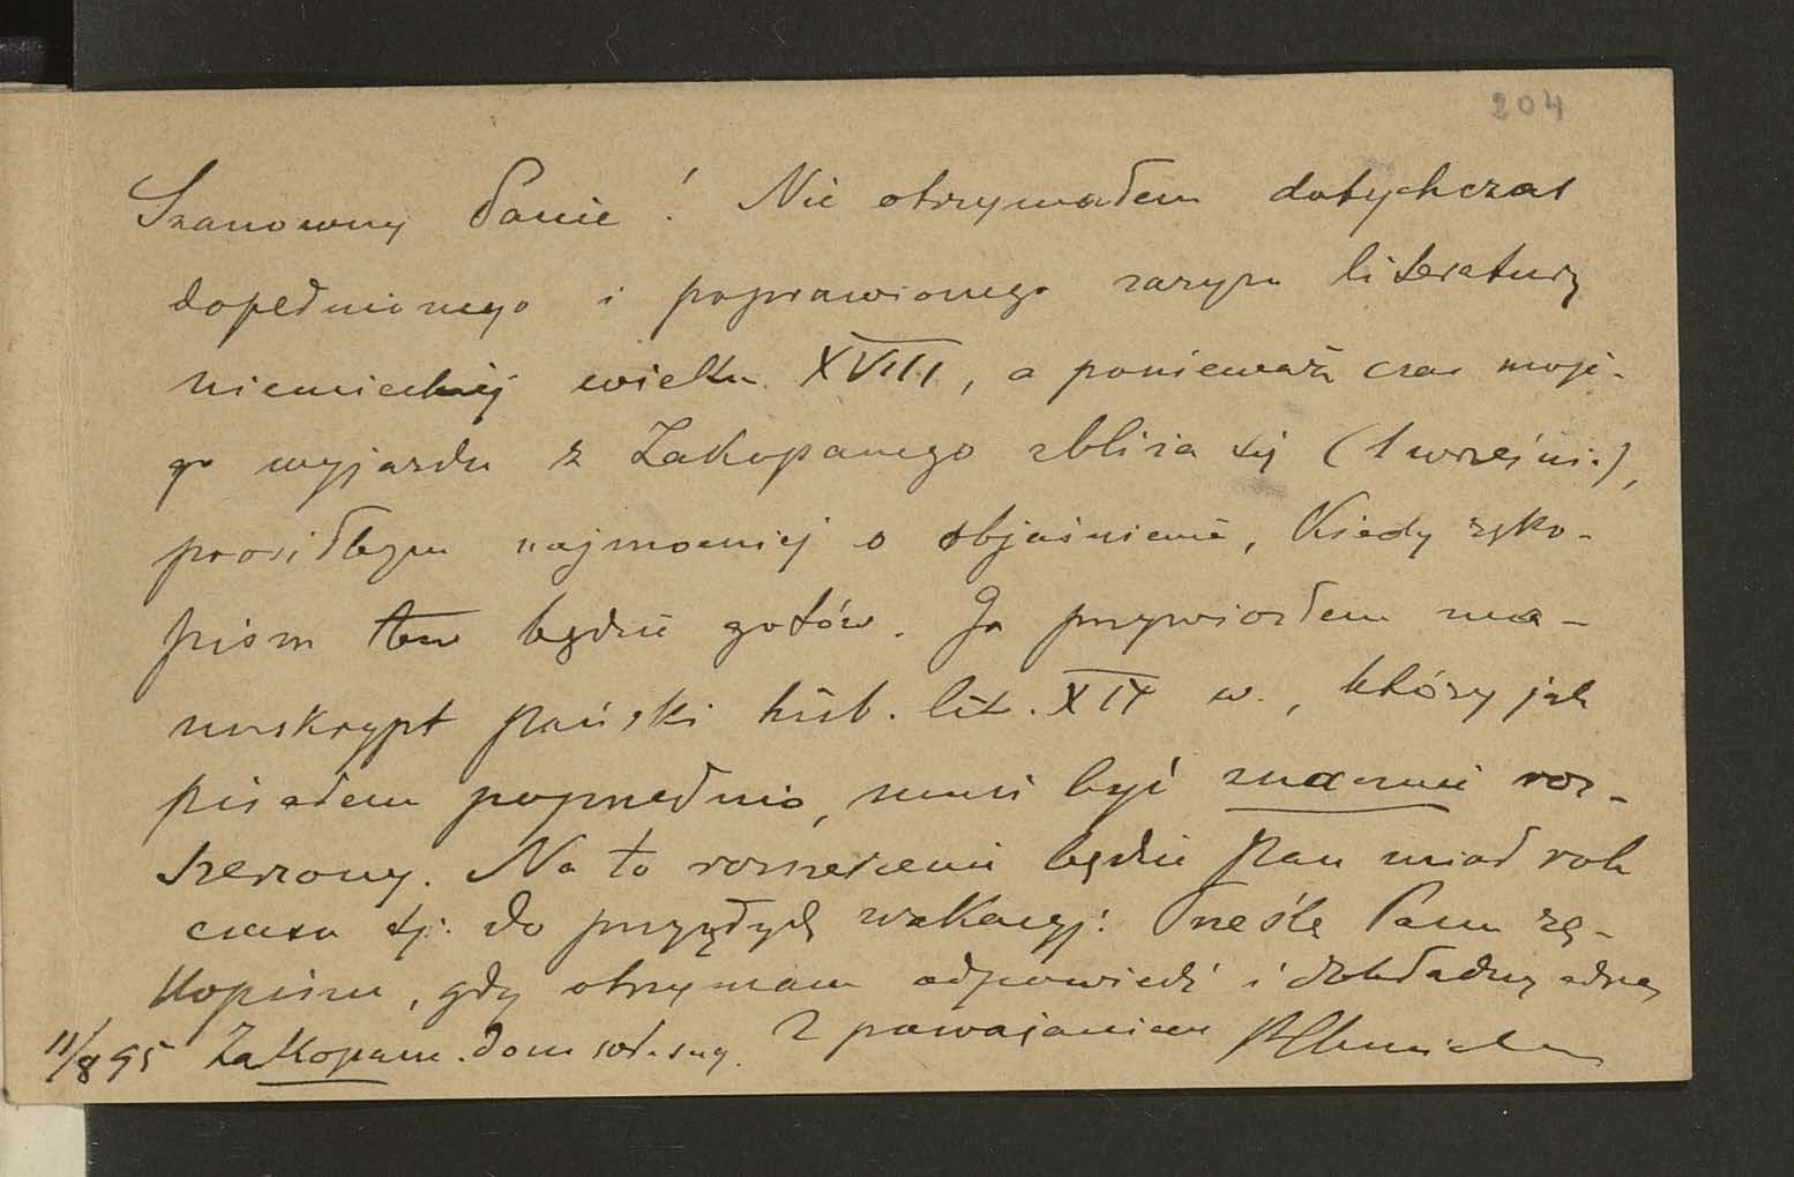 204
Szanowny Panie! Nie otrzymałem dotychczas
dopełnionego i poprawionego zarysu literatury
niemieckiej wieku XVIII, a ponieważ czas moje-
go wyjazdu z Zakopanego zbliża się (1 wrześni.),
prosiłbym najmocniej o objaśnienie, kiedy ręko-
pism ten będzie gotów. Ja przywiozłem ma-
nuskrypt pański hist. lit. XIX w., który jak
pisałem poprzednio, musi być znacznie roz-
szerzony. Na to rozszerzenie będzie Pan miał rok
czasu tj. do przyszłych wakacyj. Prześlę Panu rę-
kopism, gdy otrzymam odpowiedź i dokładny adres
11/8 95 Zakopane. Dom własny. Z poważaniem PChmielow